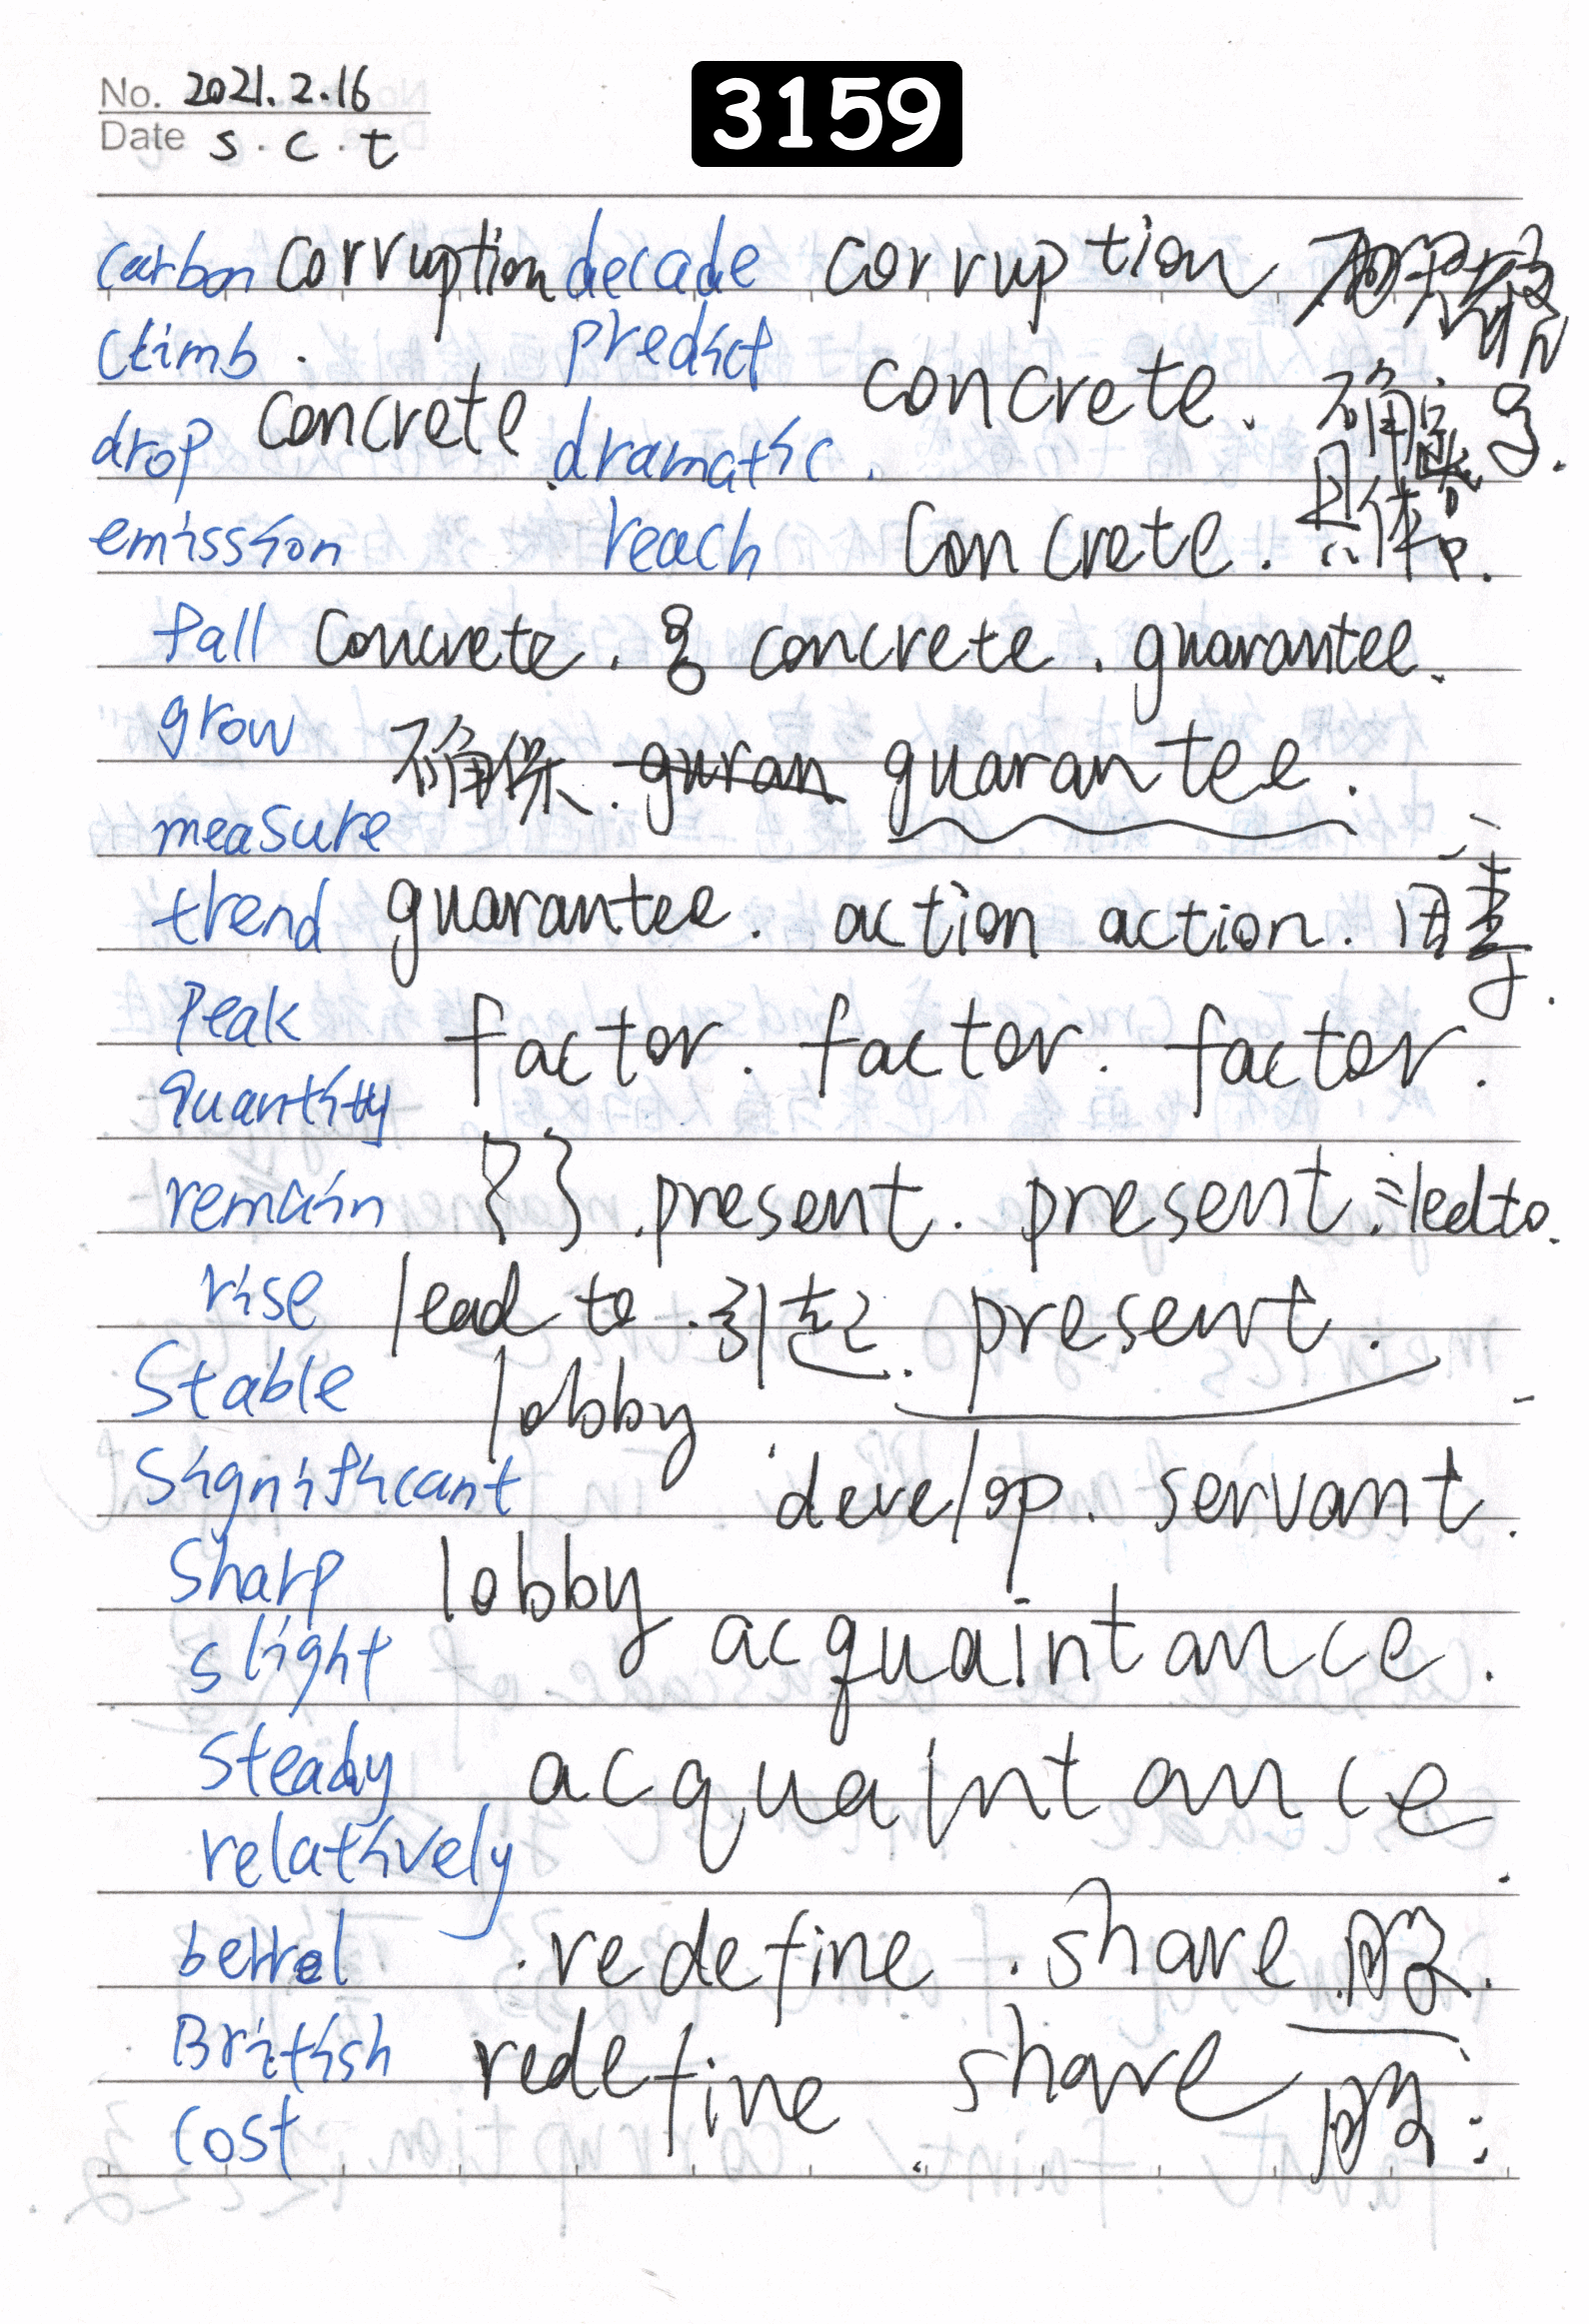 No. 2021.2.16
3159
Date s.c.t
carbon corruption decade corruption
climb . predict concrete. 确定
drop concrete dramatic.
emission reach concrete. 具体
fall concrete. 8 concrete. guarantee.
grow 确保. guran guarantee.
measure
trend guarantee. action action. 因素
peak factor. factor. factor.
quantity
remain {} .present. present. =ledto.
rise lead to .引起. present.
Stable lobby
Significant develop. servant.
Sharp lobby acquaintance.
slight
Steady acquaintance
relatively
berrel .redefine .share 股.
British redefine share 股.
cost